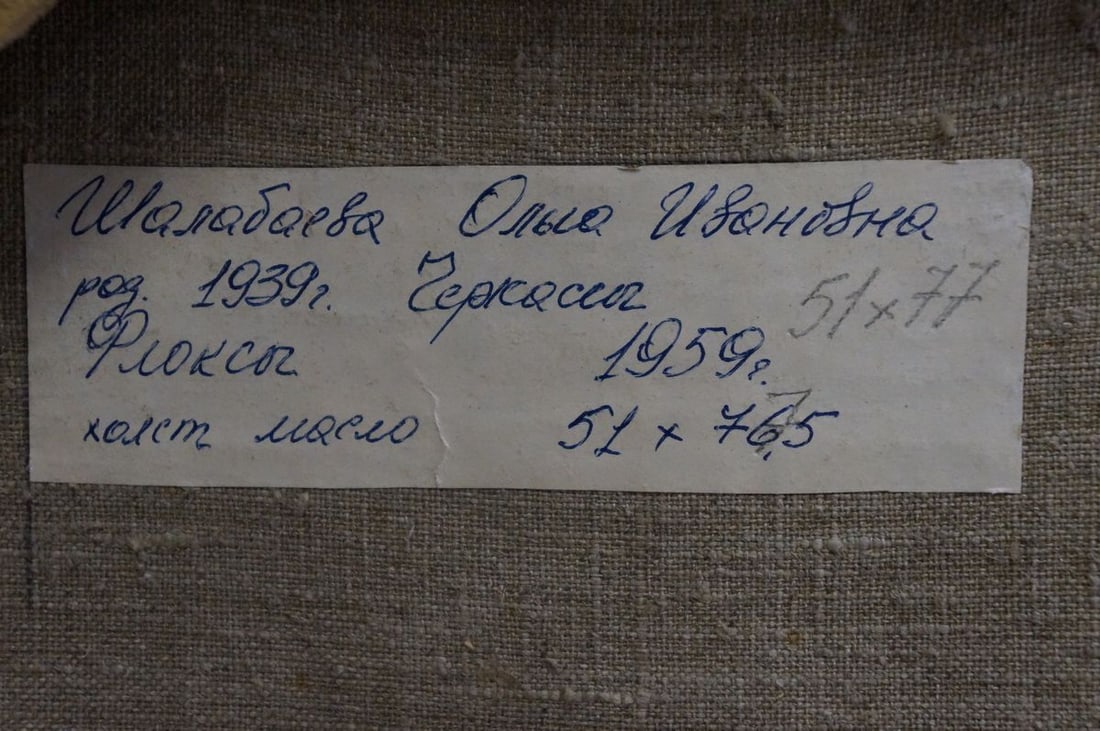 Шалабаева Ольга Ивановна
род. 1939г. Черкассы 51x77
Флоксы 1959г.
холст масло 51 x 76,5
7